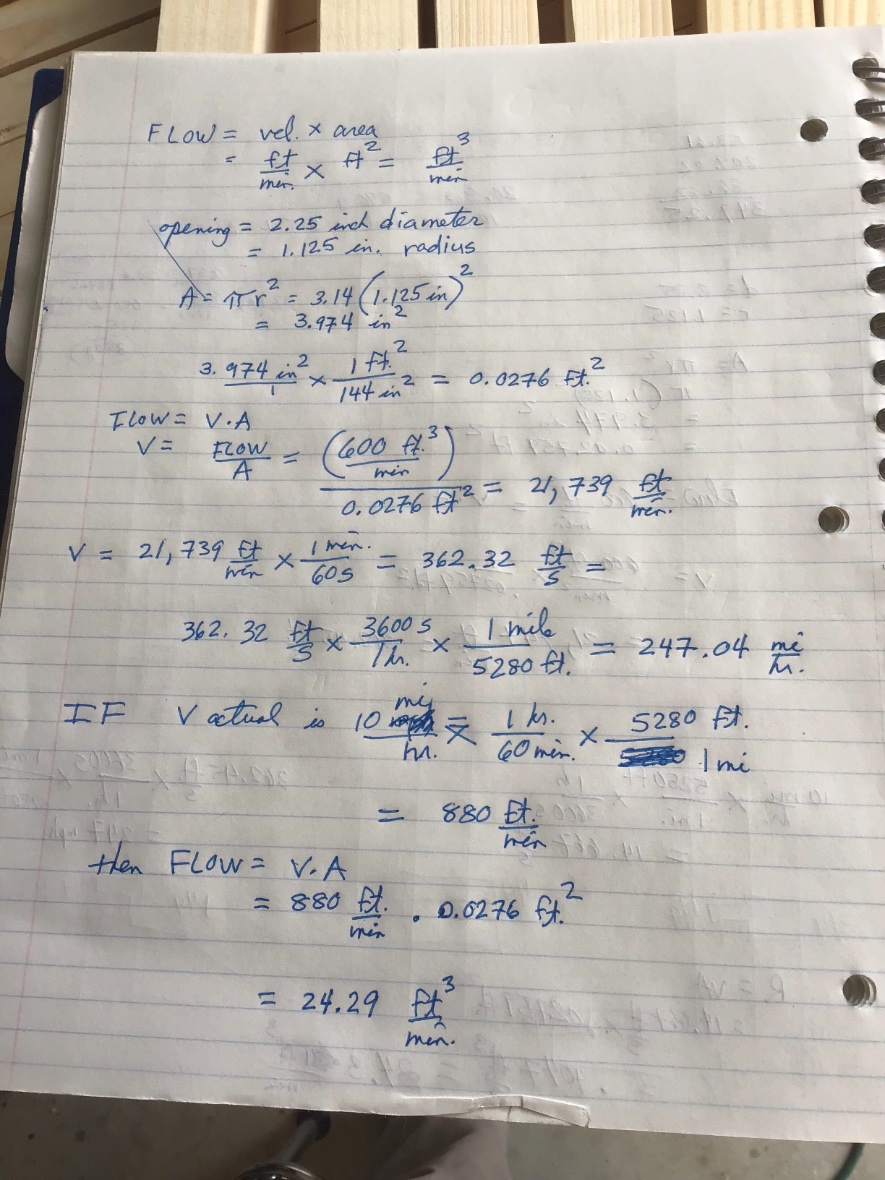 FLOW = vel. × area
= ft/min. × ft² = ft³/min
opening = 2.25 inch diameter
= 1.125 in. radius
A = πr² = 3.14 (1.125 in)²
= 3.974 in²
3.974 in²/1 × 1 ft.²/144 in² = 0.0276 ft.²
FLOW = V·A
V = FLOW/A = (600 ft.³/min)/0.0276 ft² = 21,739 ft/min.
V = 21,739 ft/min × 1 min./60 s = 362.32 ft/s =
362.32 ft/s × 3600 s/1 hr. × 1 mile/5280 ft. = 247.04 mi/hr.
IF V actual is 10 mi/hr. = × 1 hr./60 min. × 5280 ft./1 mi
= 880 ft./min
then FLOW = V·A
= 880 ft./min · 0.0276 ft.²
= 24.29 ft³/min.